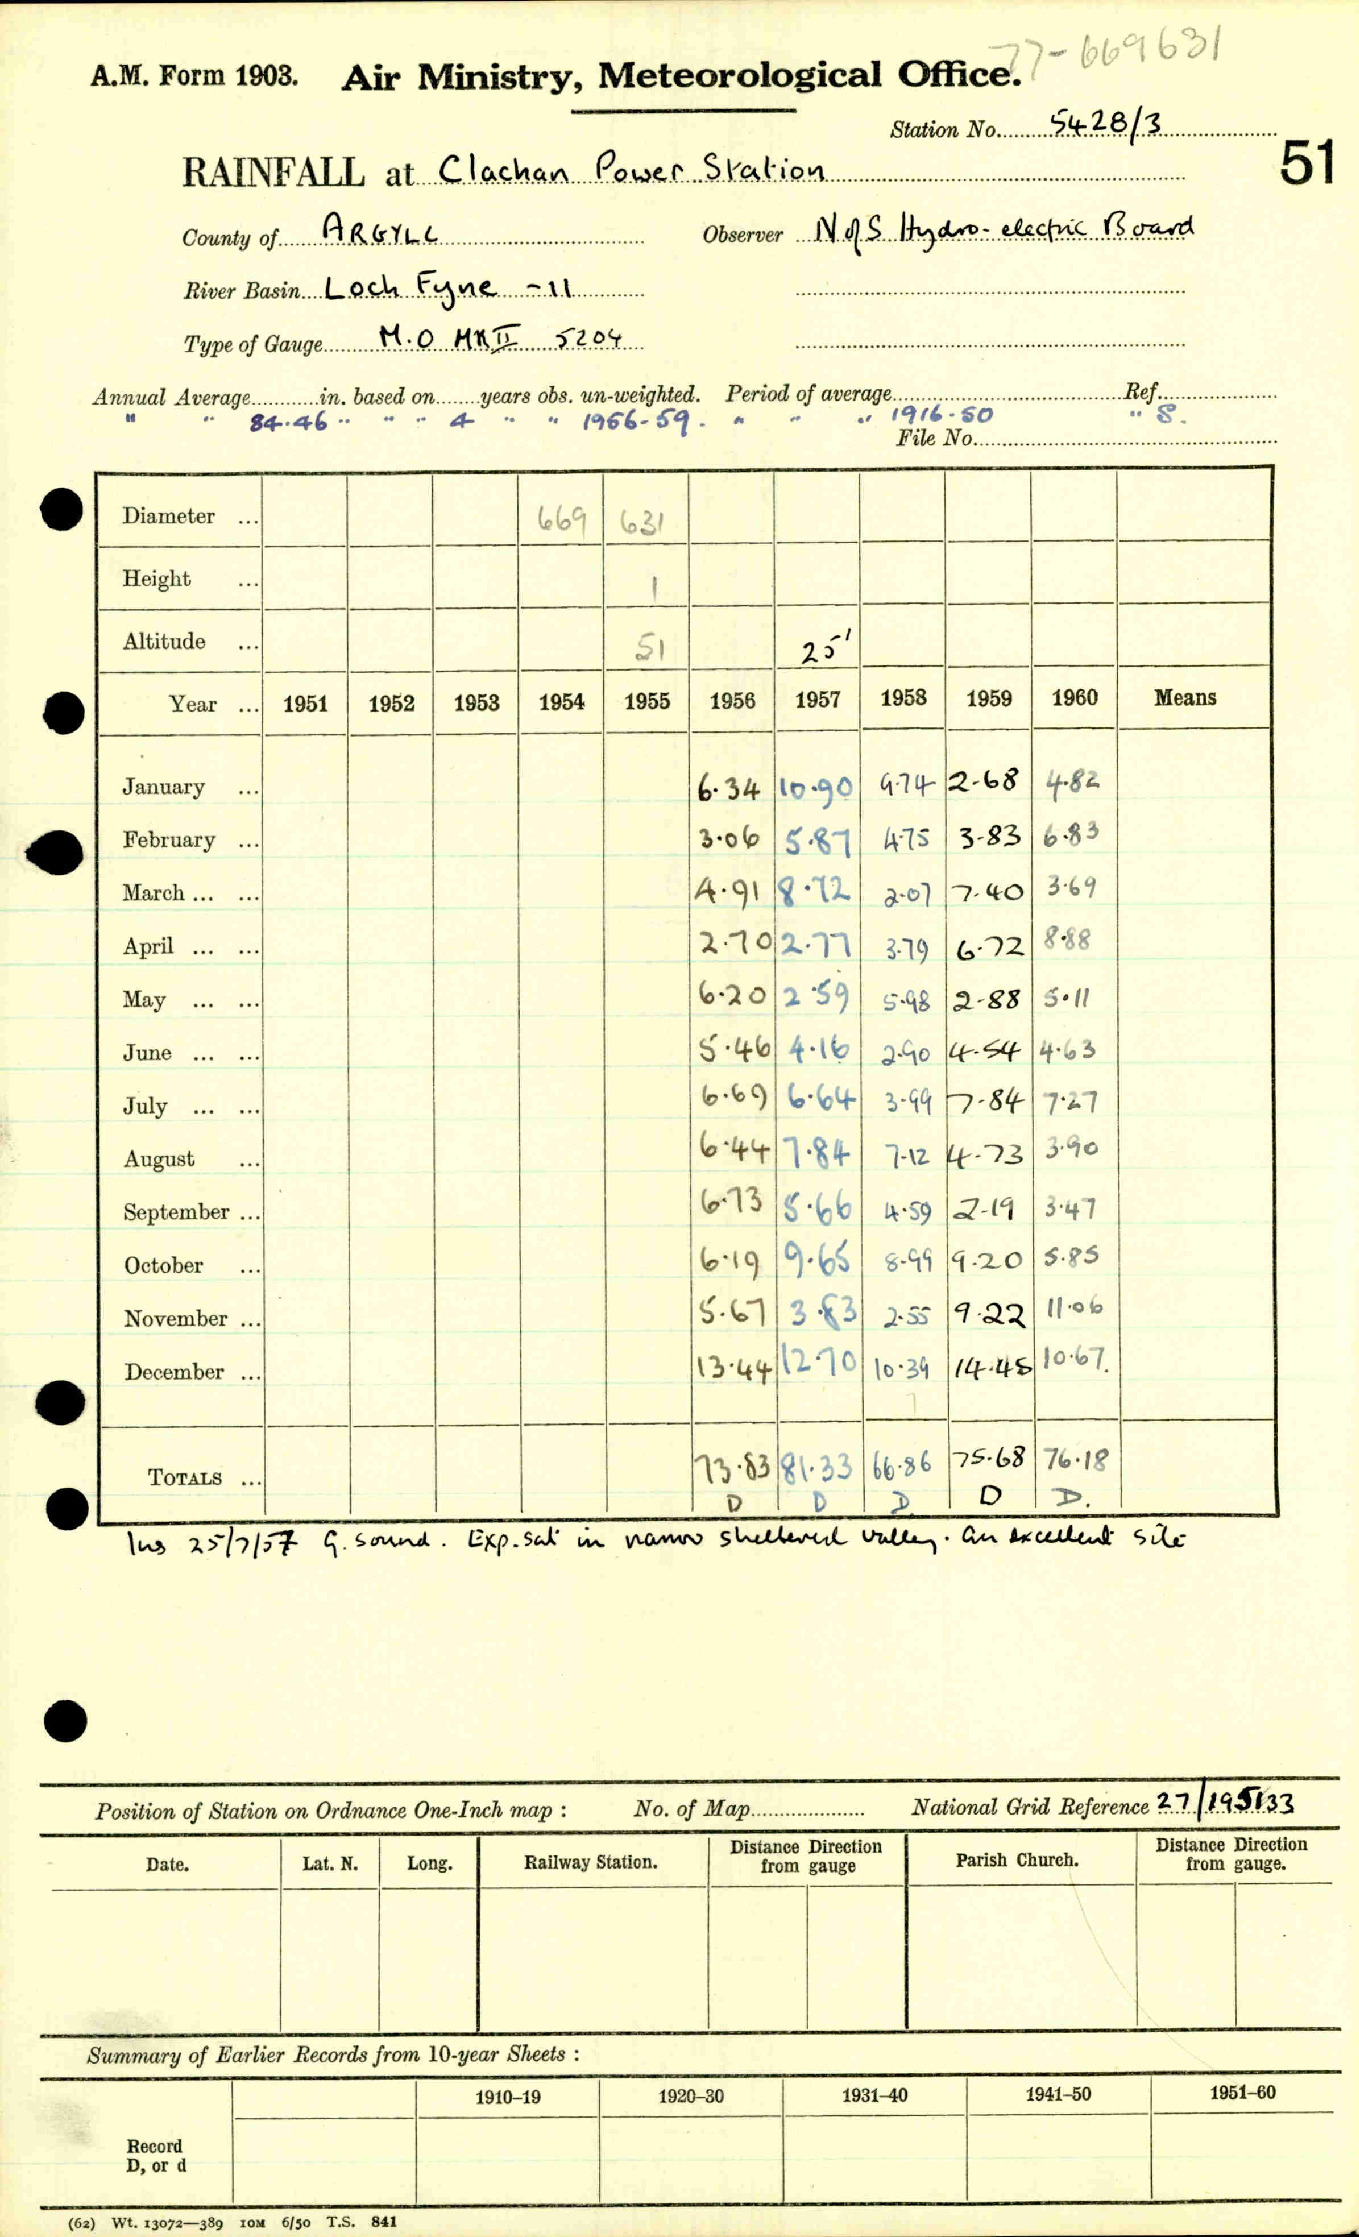 77-669631
A.M. Form 1903. Air Ministry, Meteorological Office.
Station No. 5428/3
51
RAINFALL at Clachan Power Station
County of ARGYLL Observer N of S Hydro-electric Board
River Basin Loch Fyne -11
Type of Gauge M.O MK II 5204
Annual Average in. based on years obs. un-weighted. Period of average Ref.
" " 84.46 " " " 4 " " 1956-59. " " " 1916-50 " S.
File No.
Diameter ... 669 631
Height ... 1
Altitude ... 51 25'
Year ... 1951 1952 1953 1954 1955 1956 1957 1958 1959 1960 Means
January ... 6.34 10.90 9.74 2.68 4.82
February ... 3.06 5.87 4.75 3.83 6.83
March ... ... 4.91 8.72 2.07 7.40 3.69
April ... ... 2.70 2.77 3.79 6.72 8.88
May ... ... 6.20 2.59 5.98 2.88 5.11
June ... ... 5.46 4.16 2.90 4.54 4.63
July ... ... 6.69 6.64 3.99 7.84 7.27
August ... 6.44 7.84 7.12 4.73 3.90
September ... 6.73 5.66 4.59 2.19 3.47
October ... 6.19 9.65 8.99 9.20 5.85
November ... 5.67 3.83 2.55 9.22 11.06
December ... 13.44 12.70 10.39 14.45 10.67.
TOTALS ... 73.83 81.33 66.86 75.68 76.18
D D D D D.
Ins 25/7/57 G. sound. Exp. sat in narrow sheltered valley. An excellent site
Position of Station on Ordnance One-Inch map : No. of Map National Grid Reference 27/195133
Date. Lat. N. Long. Railway Station. Distance Direction from gauge Parish Church. Distance Direction from gauge.
Summary of Earlier Records from 10-year Sheets :
1910–19 1920–30 1931–40 1941–50 1951–60
Record
D, or d
(62) Wt. 13072—389 10M 6/50 T.S. 841